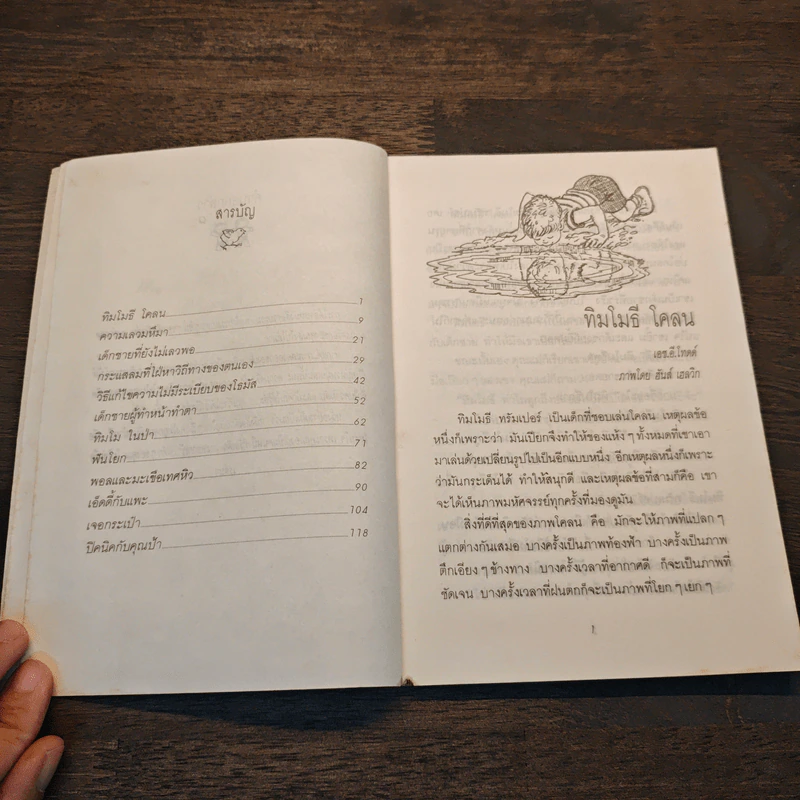 สารบัญ
ทิมโมธี โคลน 1
ความเลวมหึมา 9
เด็กชายที่ยังไม่เลวพอ 21
กระแสลมที่ใฝ่หาวิถีทางของตนเอง 29
วิธีแก้ไขความไม่มีระเบียบของโธมัส 42
เด็กชายผู้ทำหน้าทำตา 52
ทิมโม ในป่า 62
ฟันโยก 71
พอลและมะเขือเทศหิว 82
เอ็ดดี้กับแพะ 90
เจอกระเป๋า 104
ปิคนิคกับคุณป้า 118
ทิมโมธี โคลน
เอช.อี.ทอดด์
ภาพโดย ฮันส์ เฮลวิก
ทิมโมธี ทรัมเปอร์ เป็นเด็กที่ชอบเล่นโคลน เหตุผลข้อ
หนึ่งก็เพราะว่า มันเปียกจึงทำให้ของแห้ง ๆ ทั้งหมดที่เขาเอา
มาเล่นด้วยเปลี่ยนรูปไปเป็นอีกแบบหนึ่ง อีกเหตุผลหนึ่งก็เพราะ
ว่ามันกระเด็นได้ ทำให้สนุกดี และเหตุผลข้อที่สามก็คือ เขา
จะได้เห็นภาพมหัศจรรย์ทุกครั้งที่มองดูมัน
สิ่งที่ดีที่สุดของภาพโคลน คือ มักจะให้ภาพที่แปลก ๆ
แตกต่างกันเสมอ บางครั้งเป็นภาพท้องฟ้า บางครั้งเป็นภาพ
ตึกเอียง ๆ ข้างทาง บางครั้งเวลาที่อากาศดี ก็จะเป็นภาพที่
ชัดเจน บางครั้งเวลาที่ฝนตกก็จะเป็นภาพที่โยก ๆ เยก ๆ
1